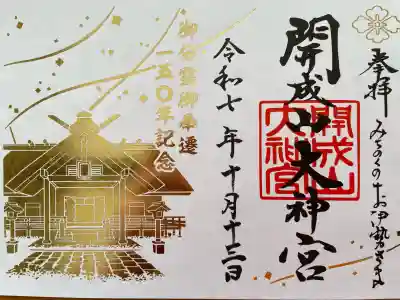 奉拝
みちのくのお伊勢さま
開成山大神宮
開成山
大神宮
令和七年十月十三日
御分霊御奉遷
一五〇年記念